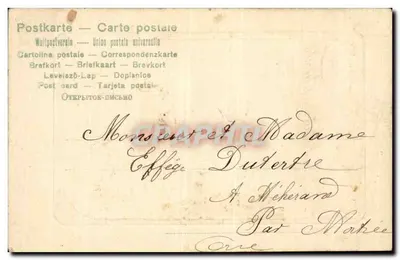 Postkarte — Carte postale
Weltpostverein — Union postale universelle
Cartolina postale — Correspondenzkarte
Brefkort — Briefkaart — Brevkort
Levelező-Lap — Dopisnice
Post card — Tarjeta postal
Открытое письмо
Monsieur et Madame
Dutertre
A
Par Mortrée
Orne